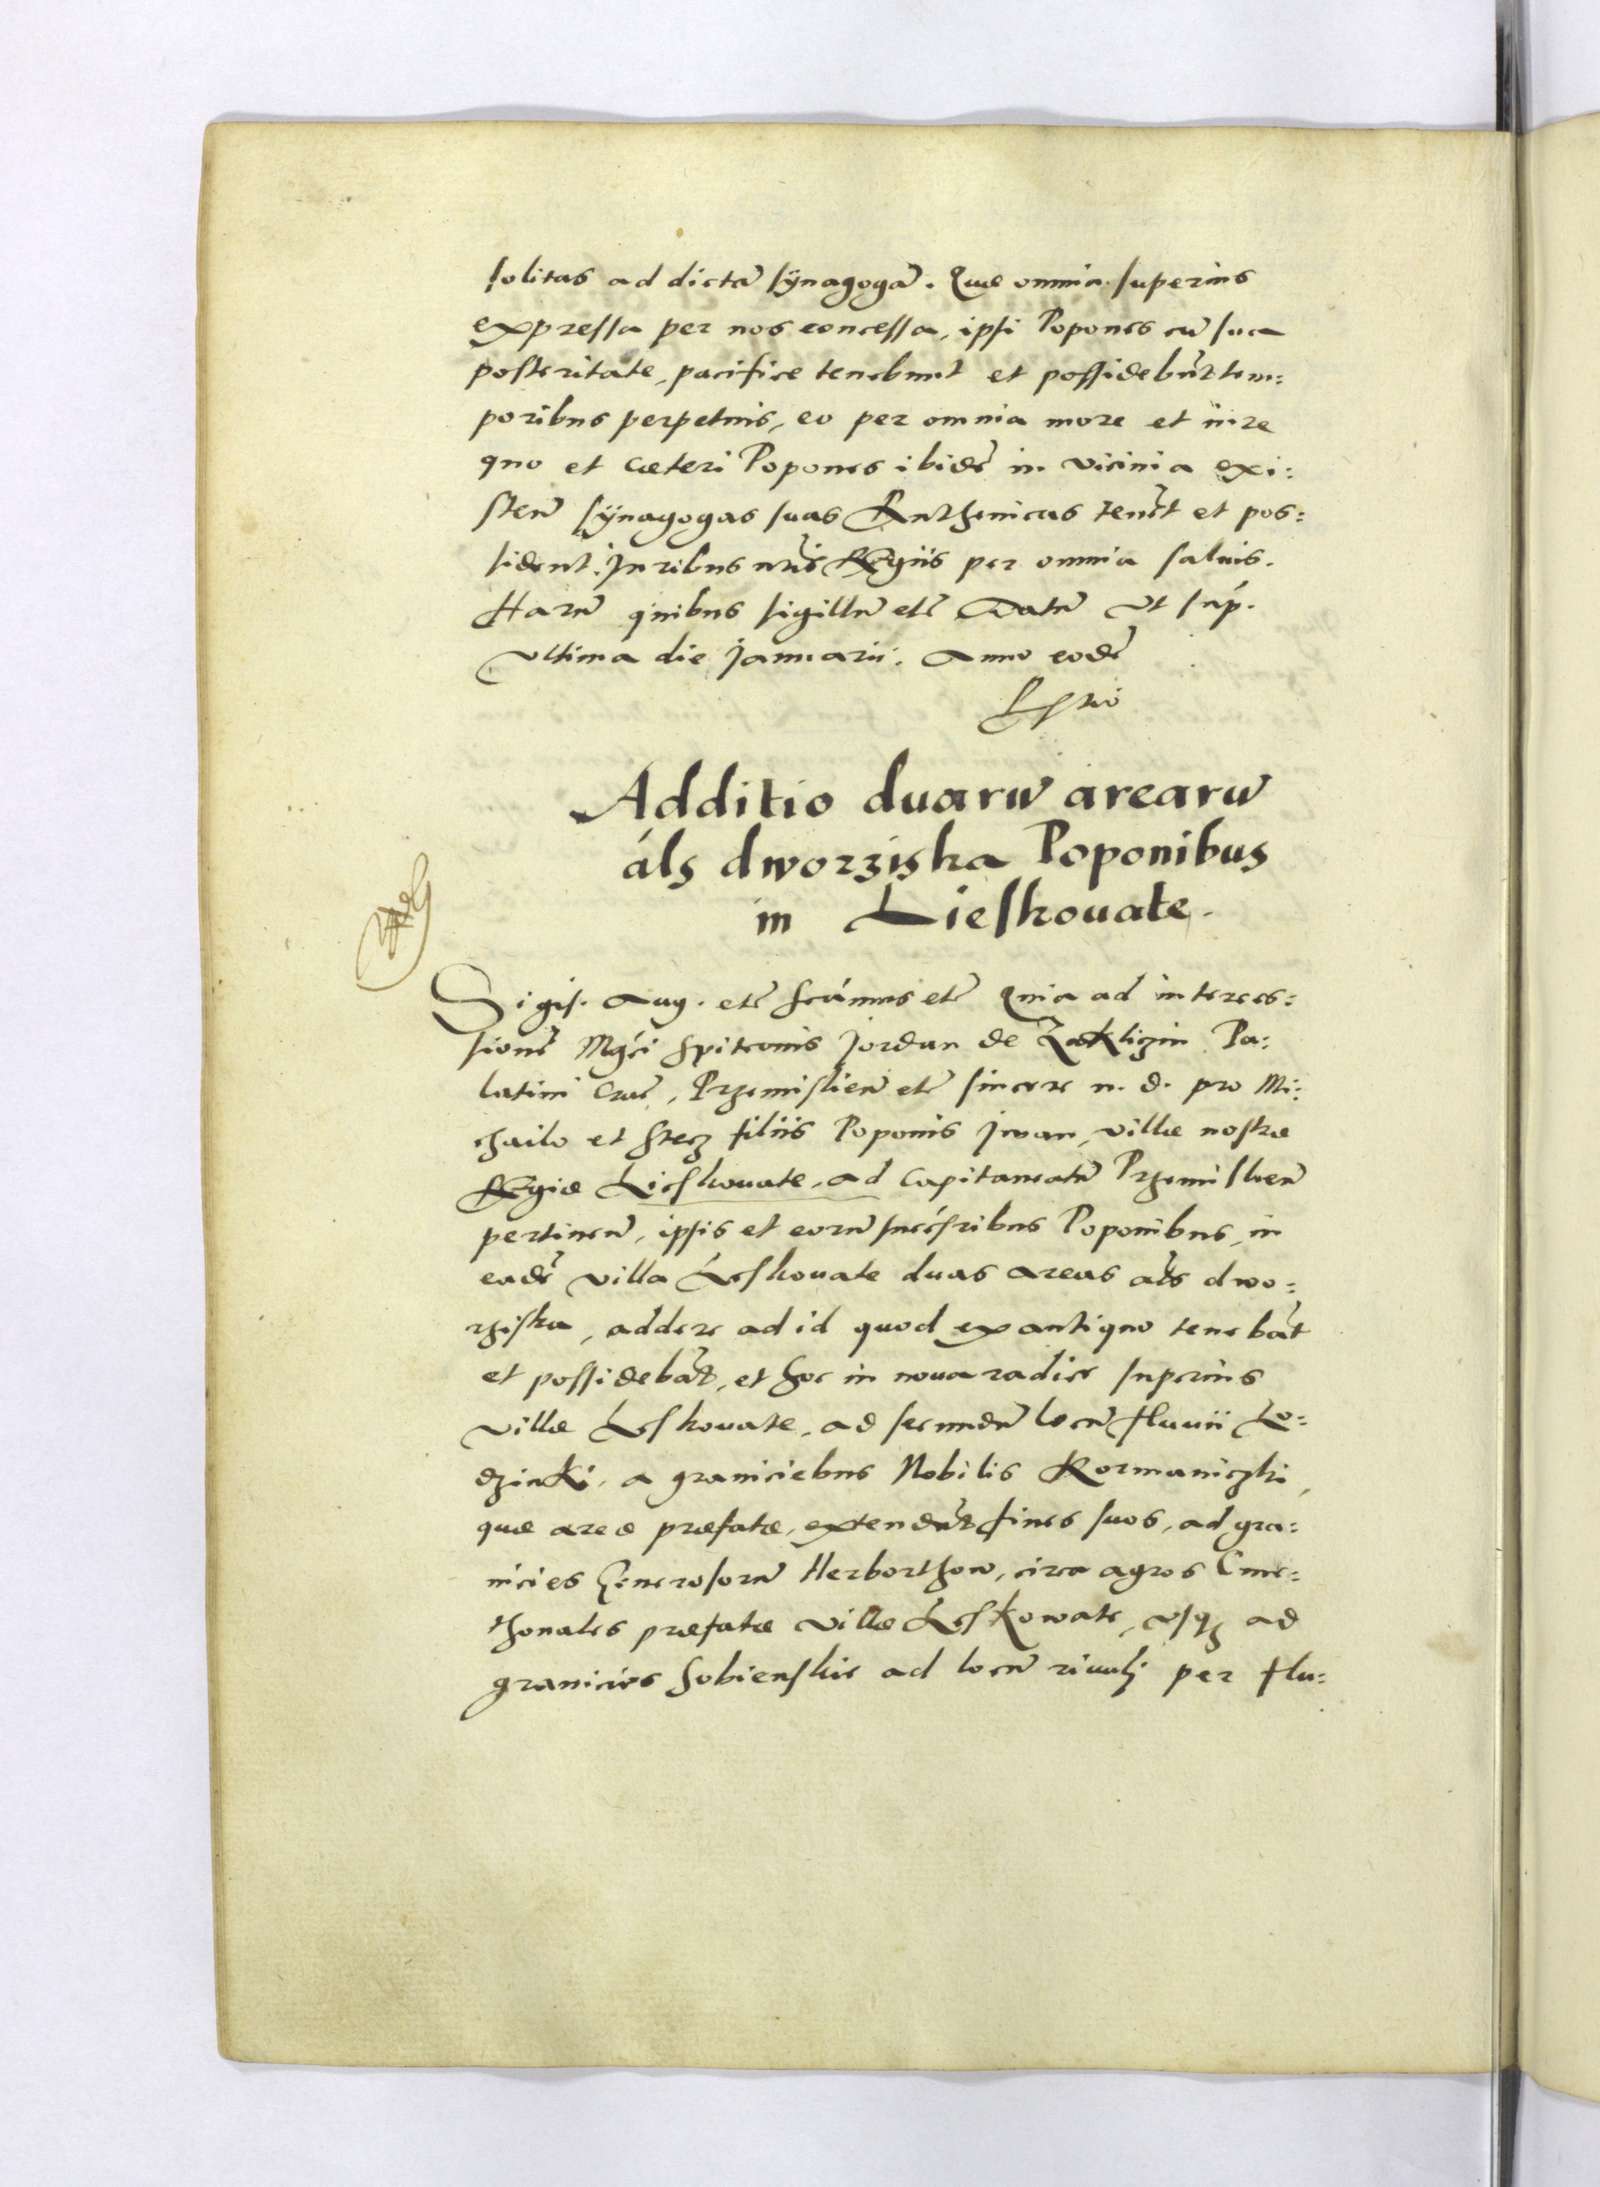 solitas ad dictã sÿnagogã. Quæ omnia superius
expressa per nos concessa, ipsi Popones cũ sua
posteritate, pacifice tenebunt et possidebũt tem:
poribus perpetuis, eo per omnia more et iure
quo et cæteri Popones ibidẽ in vicinia exi:
steñ sÿnagogas suas Ruthenicas tenẽt et pos:
sident. Juribus nr̃is Regiis per omnia saluis.
Harũ quibus sigillũ etc̃ Datũ Vt sup.
Vltima die Januarii. Anno eodẽ
Additio duarũ arearũ
als dworziska Poponibus
in Lieskouate.
Sigis. Aug. etc̃ scimus etc̃ Quia ad interces:
sionẽ Mgci Spitconis Jordan de Zakliczin Pa:
latini Crac̃, Przemislieñ etc̃ sincere n. d. pro Mi:
hailo et Stecz filiis Poponis Jwan, villæ nostræ
Regiæ Lieskouate, ad Capitaneatũ Przemislieñ
pertineñ, ipsis et eorũ succesribus Poponibus, in
eadẽ villa Leskouate duas areas als dwo:
rziska, addere ad id quod ex antiquo tenebãt
et possidebãt, et hoc in noua radice superius
villæ Leskouate, ad secundũ locũ fluuii Lo:
dzinki, a graniciebus Nobilis Kormaniczki,
quæ areæ præfatæ, extendũt fines suos, ad gra:
nicies Generosorũ Herborthow, circa agros Cme:
thonales præfatæ villæ Leskowate, vsq3 ad
granicies Sobienskie ad locũ riuuli per flu: